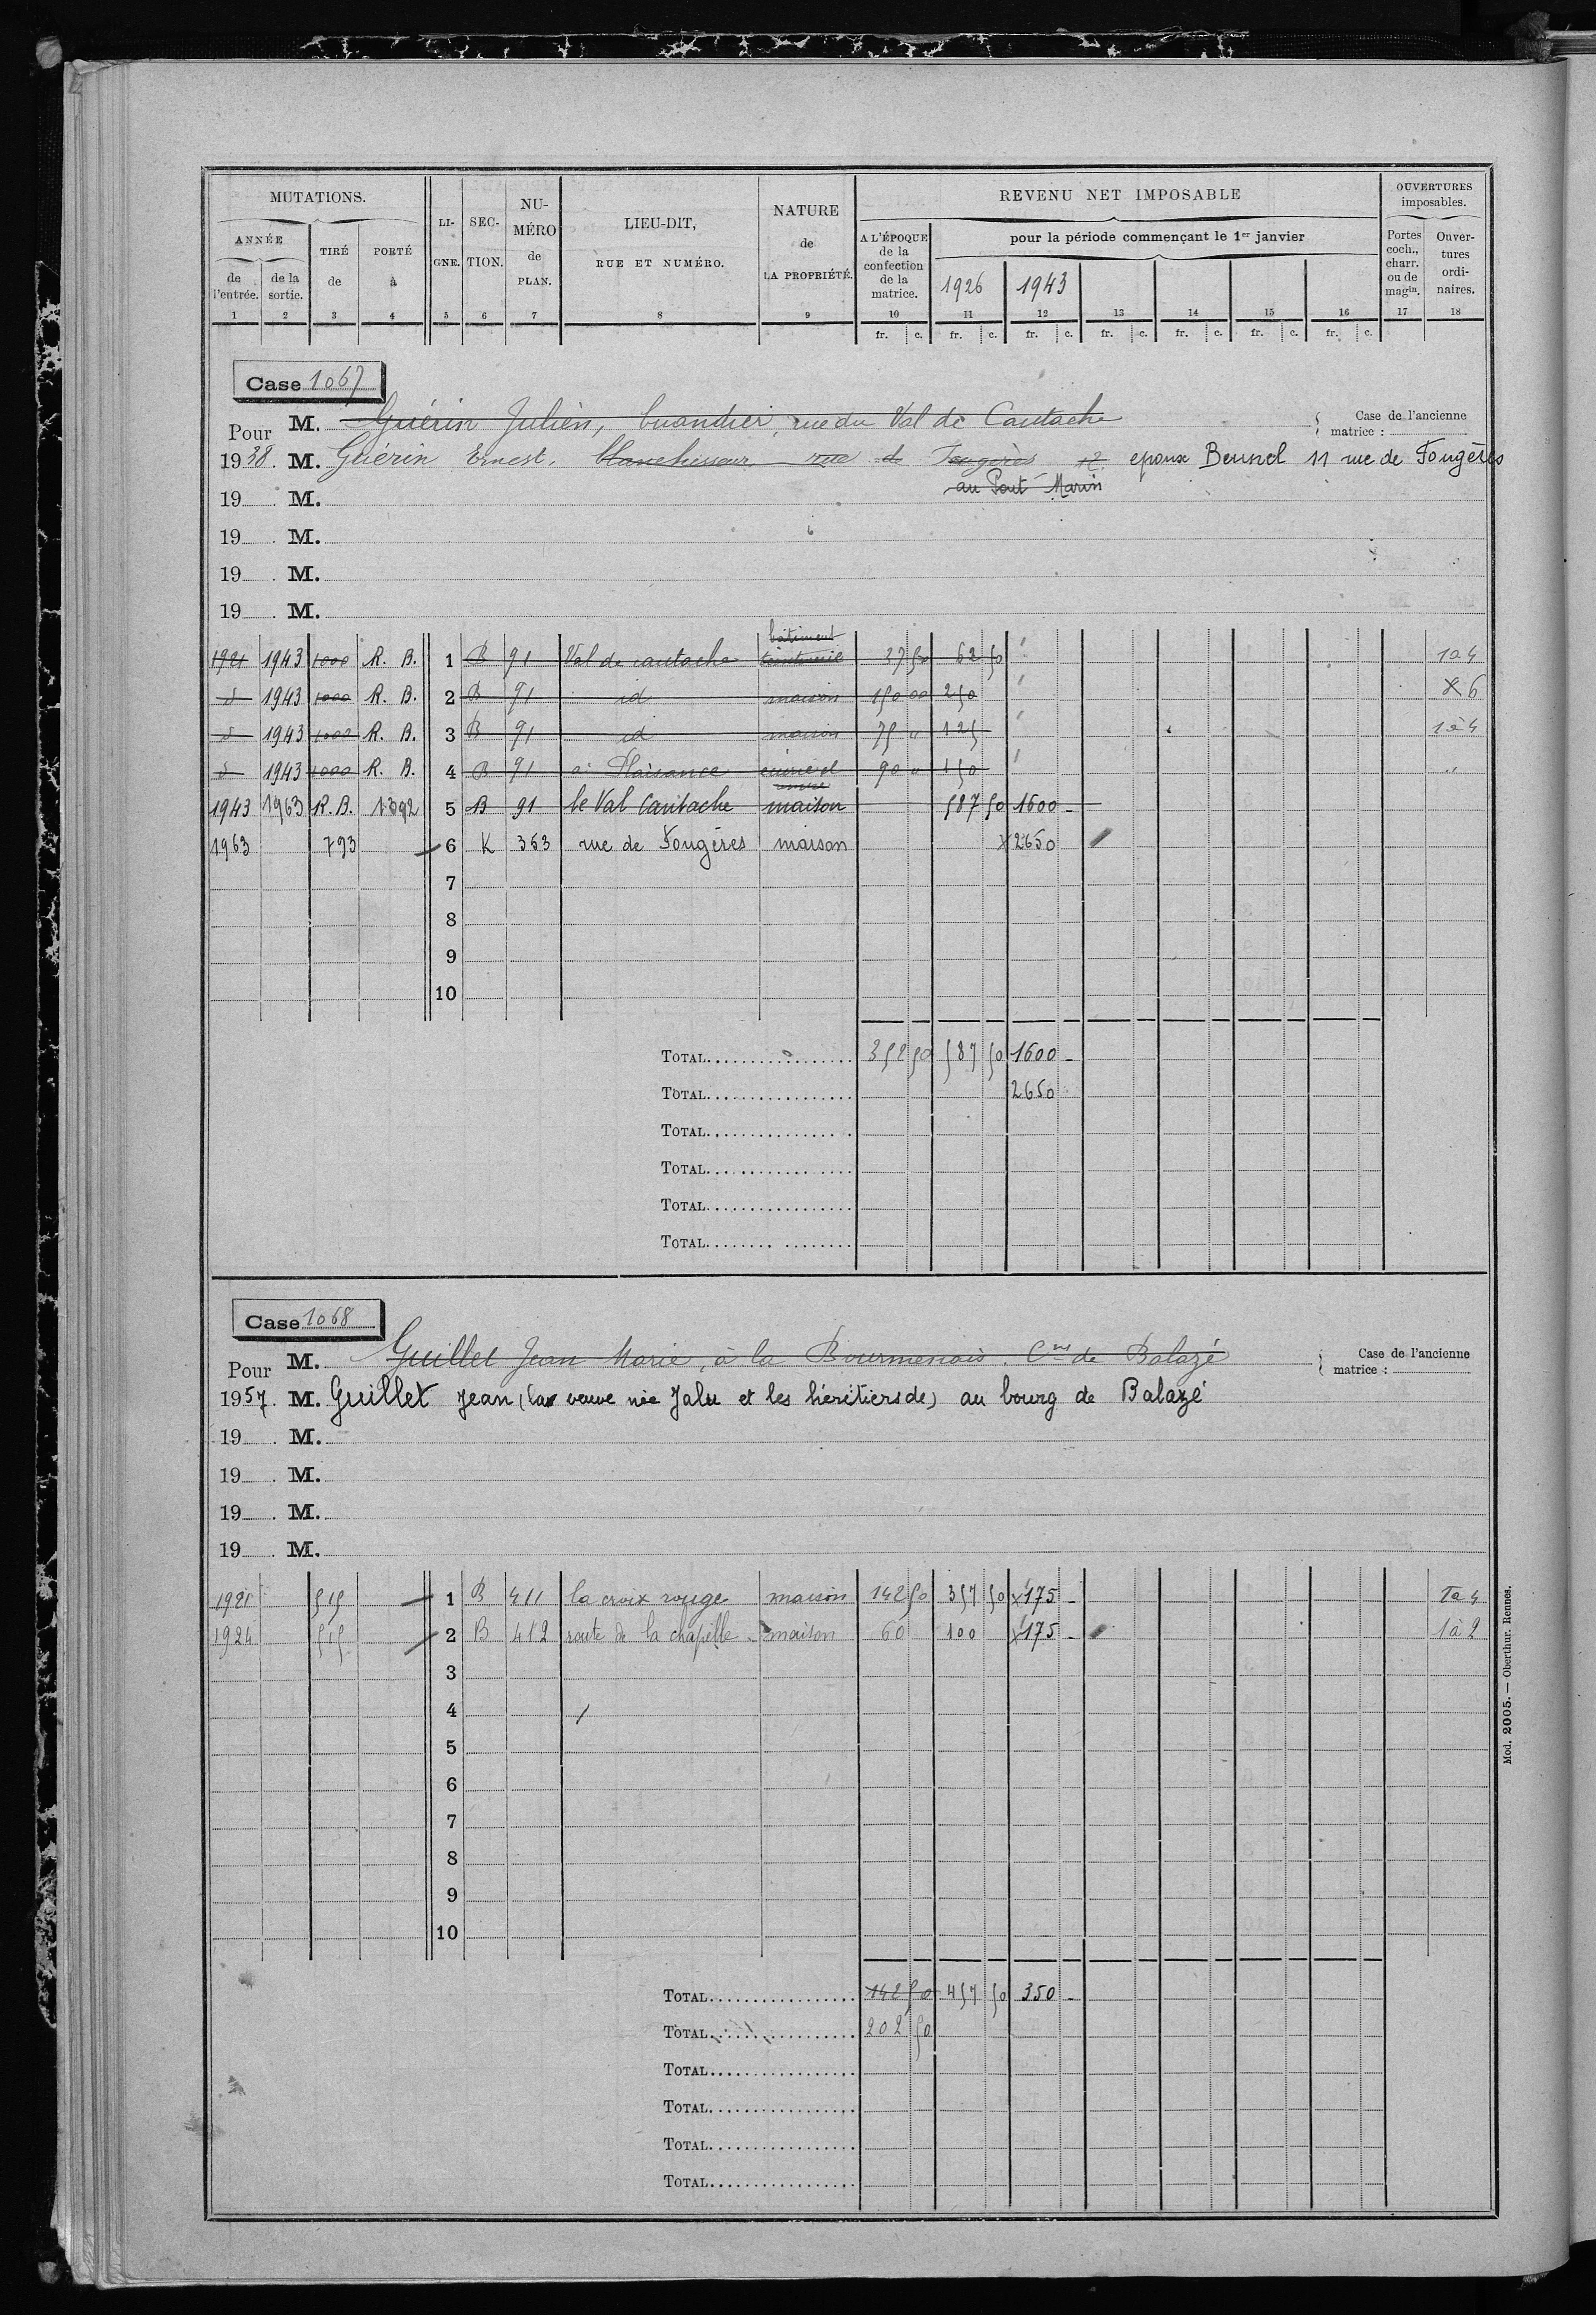 MUTATIONS.
ANNÉE
de l'entrée.
de la sortie.
TIRÉ de
PORTÉ à
LI-GNE.
SEC-TION.
NU-MÉRO de PLAN.
LIEU-DIT, RUE ET NUMÉRO.
NATURE de LA PROPRIÉTÉ.
REVENU NET IMPOSABLE
A L'ÉPOQUE de la confection de la matrice.
pour la période commençant le 1er janvier
1926 1943
OUVERTURES imposables.
Portes coch., charr. ou de magin.
Ouver-tures ordi-naires.
1 2 3 4 5 6 7 8 9 10 11 12 13 14 15 16 17 18
fr. c. fr. c. fr. c. fr. c. fr. c. fr. c. fr. c.
Case 1067
Pour M. Guérin Julien, buandier, rue du Val de Cantache
Case de l'ancienne matrice :
1938. M. Guérin Ernest, blanchisseur, rue de Fougères 12 epoux Beunel 11 rue de Fougères
au Pont Marin
19 M.
19 M.
19 M.
19 M.
bâtiment
1921 1943 1000 R. B. 1 B 91 Val de cantache 37 50 62 50 1 à 4
d 1943 1000 R. B. 2 B 91 id maison 150 00 250 6
d 1943 1000 R. B. 3 B 91 id maison 75 " 125 1 à 4
d 1943 1000 R. B. 4 B 91 à Plaisance 90 " 150 "
1943 1963 R. B. 1392 5 B 91 le Val Cantache maison 587 50 1600 -
1963 793 6 K 363 rue de Fougères maison x 2650
7
8
9
10
TOTAL 352 50 587 50 1600 -
TOTAL 2650
TOTAL
TOTAL
TOTAL
TOTAL
Case 1068
Pour M. Guillet Jean Marie, à la Bourmenais. Cne de Balazé
Case de l'ancienne matrice :
1957. M. Guillet Jean (la veuve née Jalu et les héritiers de) au bourg de Balazé
19 M.
19 M.
19 M.
19 M.
1921 515 1 B 411 la croix rouge maison 142 50 357 50 x 175 - 1 à 4
1924 515 2 B 412 route de la chapelle maison 60 100 x 175 - 1 à 2
3
4
5
6
7
8
9
10
TOTAL 142 50 457 50 350 -
TOTAL 202 50
TOTAL
TOTAL
TOTAL
TOTAL
Mod. 2005. — Oberthur. Rennes.